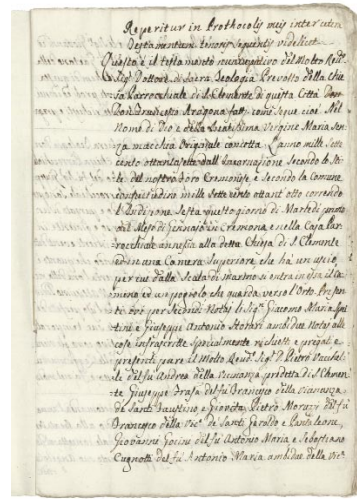 Reperitur in Prothocolis meis inter cetera
Testamentum tenoris sequentis videlicet
Questo è il testamento nuncupativo del Molto Rev.
Sig. Dottore di Sacra Teologia Prevosto della Chie
sa Parrocchiale di S. Clemente di questa Città Don
Don Francesco Aragona fatto come segue cioè Nel
Nome di Dio e della Beatissima Vergine Maria sen
za macchia Originale concetta L'anno mille sette
cento ottantasette dall'Incarnazione Secondo lo sti
le del nostro Foro Cremonese e secondo la Comune
mille sette cento ottant otto correndo
l'Indizione Sesta questo giorno di Martedì primo
del Mese di Gennaio in Cremona e nella Casa Par
rocchiale annessa alla detta Chiesa di S. Clemente
ed in una Camera Superiore che ha un uscio
per cui dalla Scala di si entra in essa il ca
mino ed un che guarda verso l'Orto Presen
te ivi per Secondi Notai li Sig. Giacomo Maria
tini e Giuseppe Antonio ambidue Notai alle
cose infrascritte specialmente richiesti e pregati e
presente pure il Molto Rev. Sig. D. Pietro
le del fu Andrea della Vicinanza predetta di S. Clemen
te Giuseppe del fu Francesco della Vicinanza
de Santi Faustino e Giovita, Pietro Morozzi del fu
Francesco della Vic. de Santi e Pantaleone,
Giovanni del fu Antonio Maria e Sebastiano
Cugnotti del fu Antonio Maria ambidue della Vic.